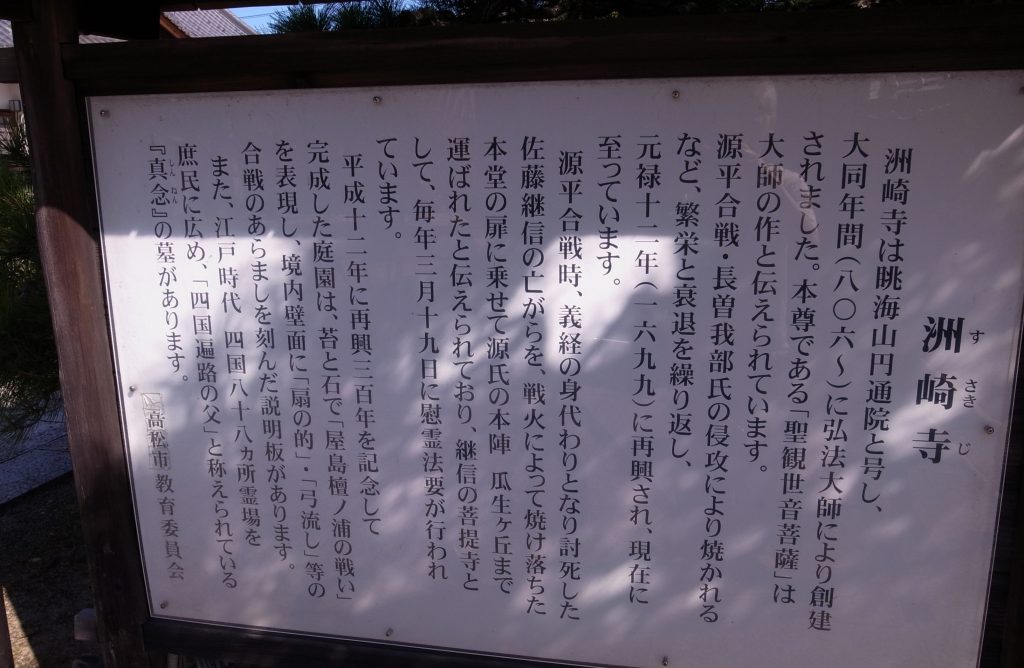 洲崎寺
すさきじ
洲崎寺は眺海山円通院と号し、
大同年間(八〇六〜)に弘法大師により創建
されました。本尊である「聖観世音菩薩」は
大師の作と伝えられています。
源平合戦・長曽我部氏の侵攻により焼かれる
など、繁栄と衰退を繰り返し、
元禄十二年(一六九九)に再興され、現在に
至っています。
源平合戦時、義経の身代わりとなり討死した
佐藤継信の亡がらを、戦火によって焼け落ちた
本堂の扉に乗せて源氏の本陣 瓜生ヶ丘まで
運ばれたと伝えられており、継信の菩提寺と
して、毎年三月十九日に慰霊法要が行われ
ています。
平成十二年に再興三百年を記念して
完成した庭園は、苔と石で「屋島檀ノ浦の戦い」
を表現し、境内壁面に「扇の的」・「弓流し」等の
合戦のあらましを刻んだ説明板があります。
また、江戸時代 四国八十八ヵ所霊場を
庶民に広め、「四国遍路の父」と称えられている
『真念』の墓があります。
しんねん
高松市教育委員会